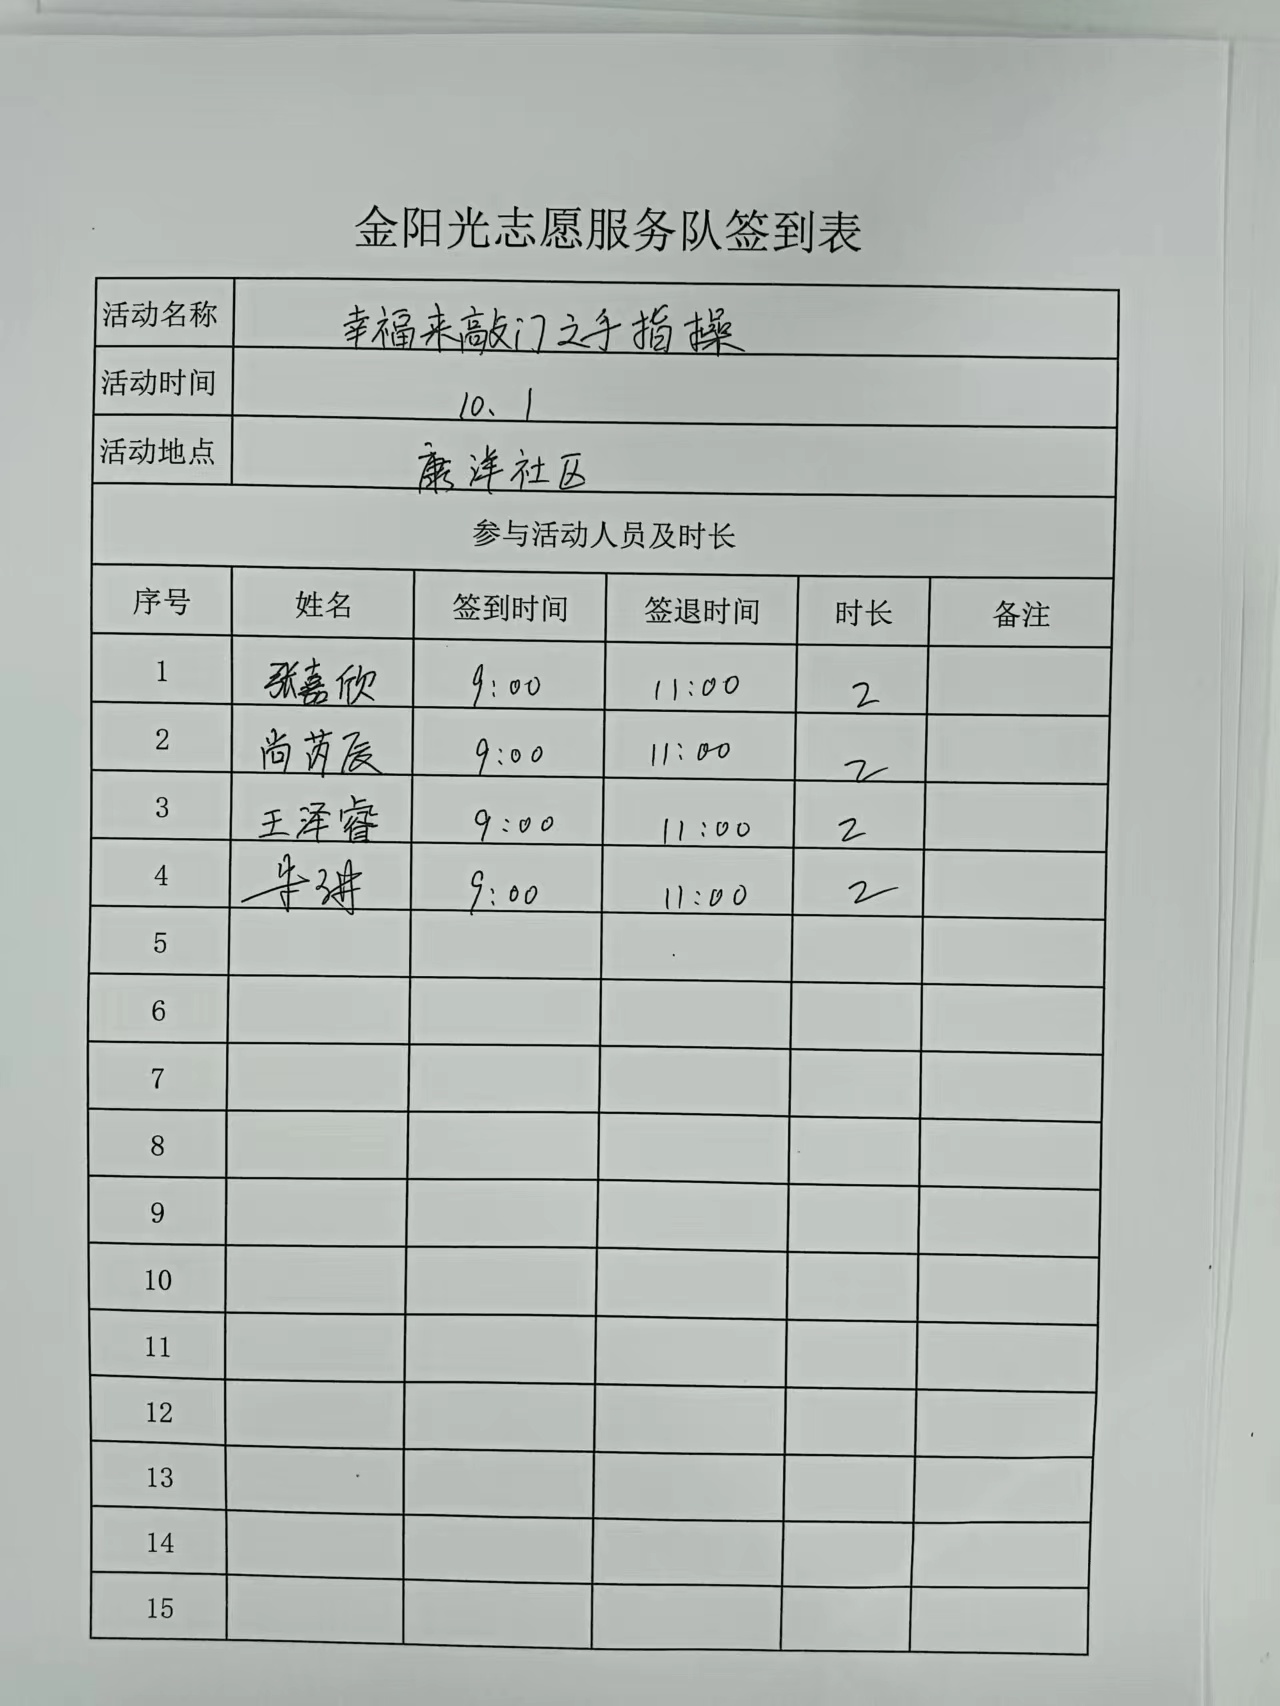 金阳光志愿服务队签到表
活动名称 幸福来敲门之手指操
活动时间 10、1
活动地点 康洋社区
参与活动人员及时长
序号 姓名 签到时间 签退时间 时长 备注
1 张嘉欣 9:00 11:00 2
2 尚芮辰 9:00 11:00 2
3 王泽睿 9:00 11:00 2
4 9:00 11:00 2
5
6
7
8
9
10
11
12
13
14
15